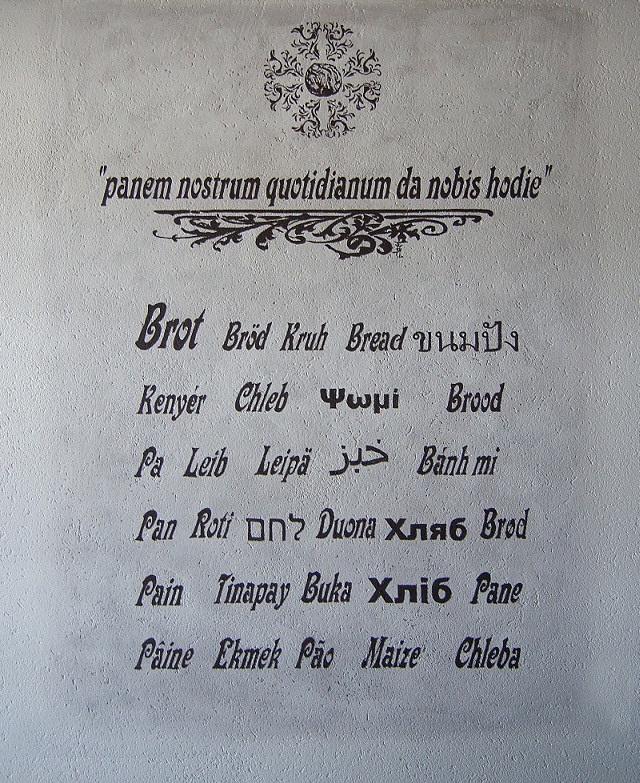 "panem nostrum quotidianum da nobis hodie"
Brot Bröd Kruh Bread ขนมปัง
Kenyér Chleb Ψωμί Brood
Pa Leib Leipä خبز Bánh mi
Pan Roti לחם Duona Хляб Brød
Pain Tinapay Buka Хліб Pane
Pâine Ekmek Pão Maize Chleba